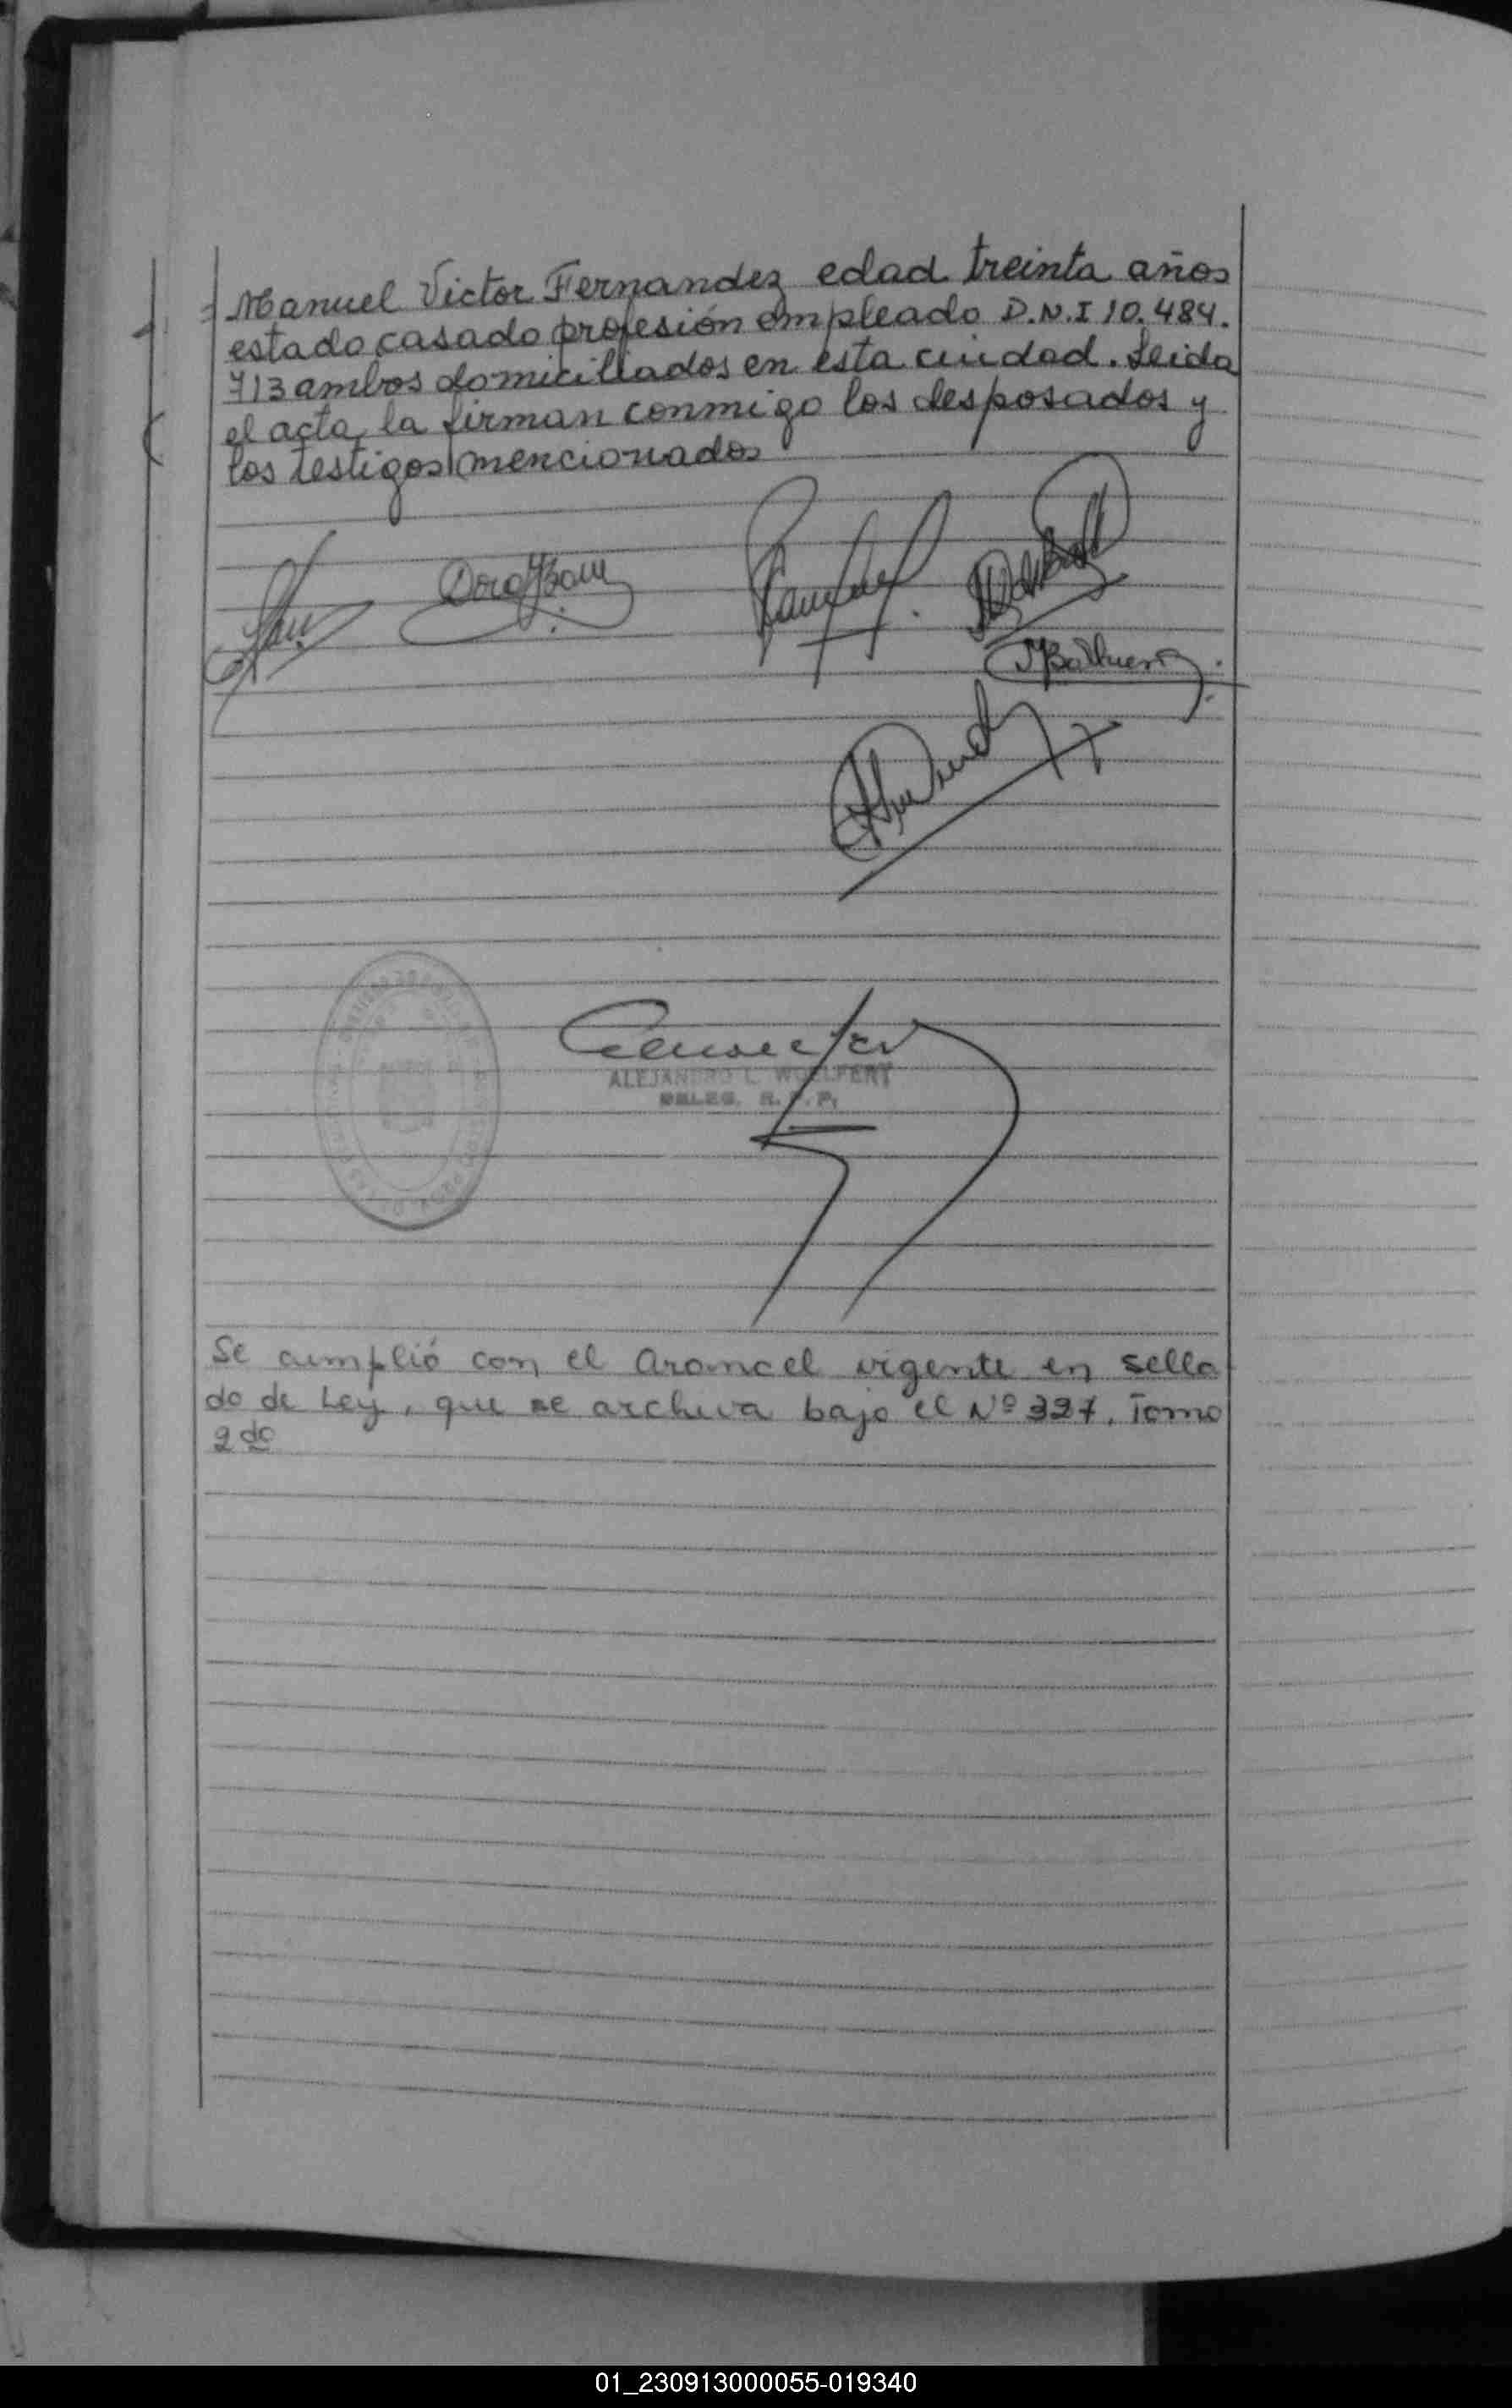 Manuel Victor Fernandez edad treinta años
estado casado profesión empleado D.N.I 10.484.
713 ambos domiciliados en esta ciudad. Leida
el acta, la firman conmigo los desposados y
los testigos mencionados
ALEJANDRO L. WOELFERT
DELEG. R. P. P.
Se cumplió con el arancel vigente en sella
do de Ley, que se archiva bajo el Nº 327, Tomo
2do
01_230913000055-019340